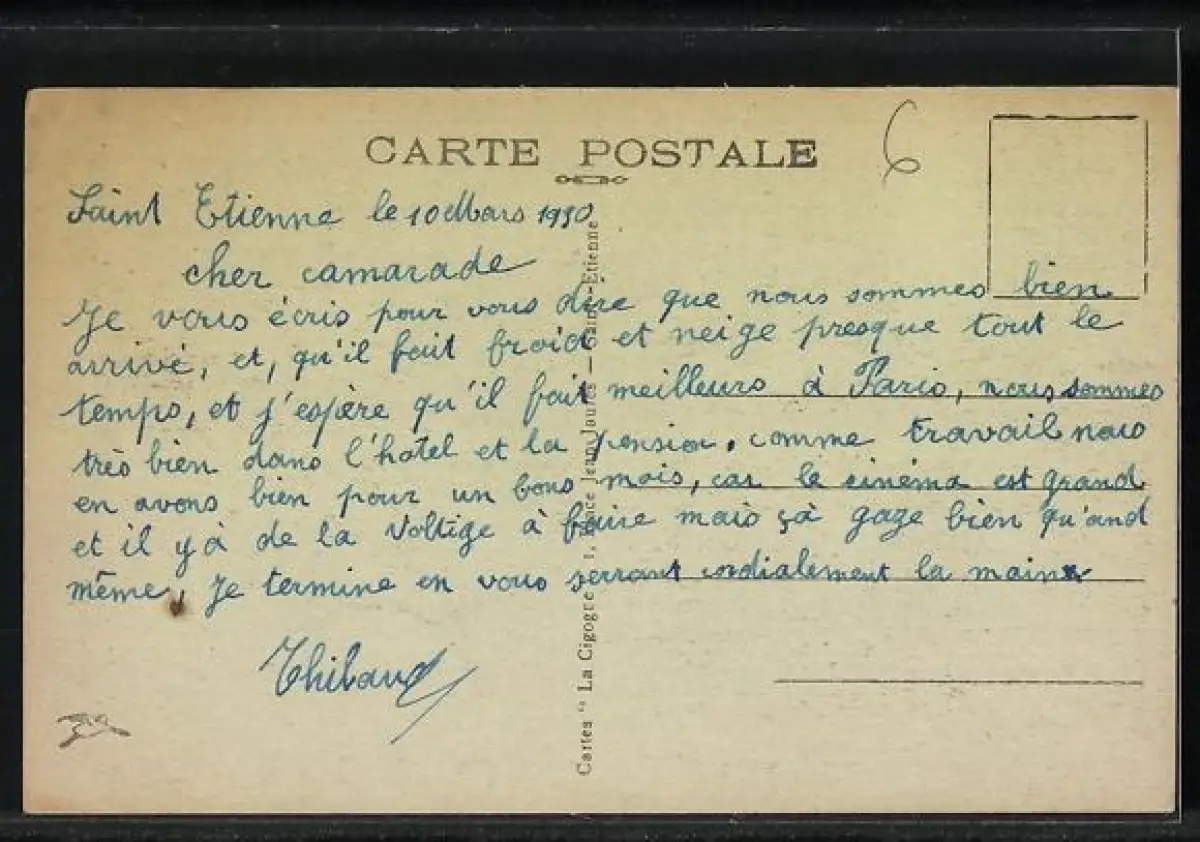 CARTE POSTALE
6
Saint Etienne le 10 Mars 1930
cher camarade
Je vous écris pour vous dire que nous sommes bien
arrivé, et, qu'il fait froid et neige presque tout le
temps, et j'espère qu'il fait meilleurs à Paris, nous sommes
très bien dans l'hotel et la pension, comme travail nous
en avons bien pour un bons mois, car le cinéma est grand
et il y à de la voltige à faire mais çà gaze bien qu'and
même, Je termine en vous serrant cordialement la main
Thibaud
Cartes "La Cigogne 1, Place Jean-Jaurès — Saint-Etienne